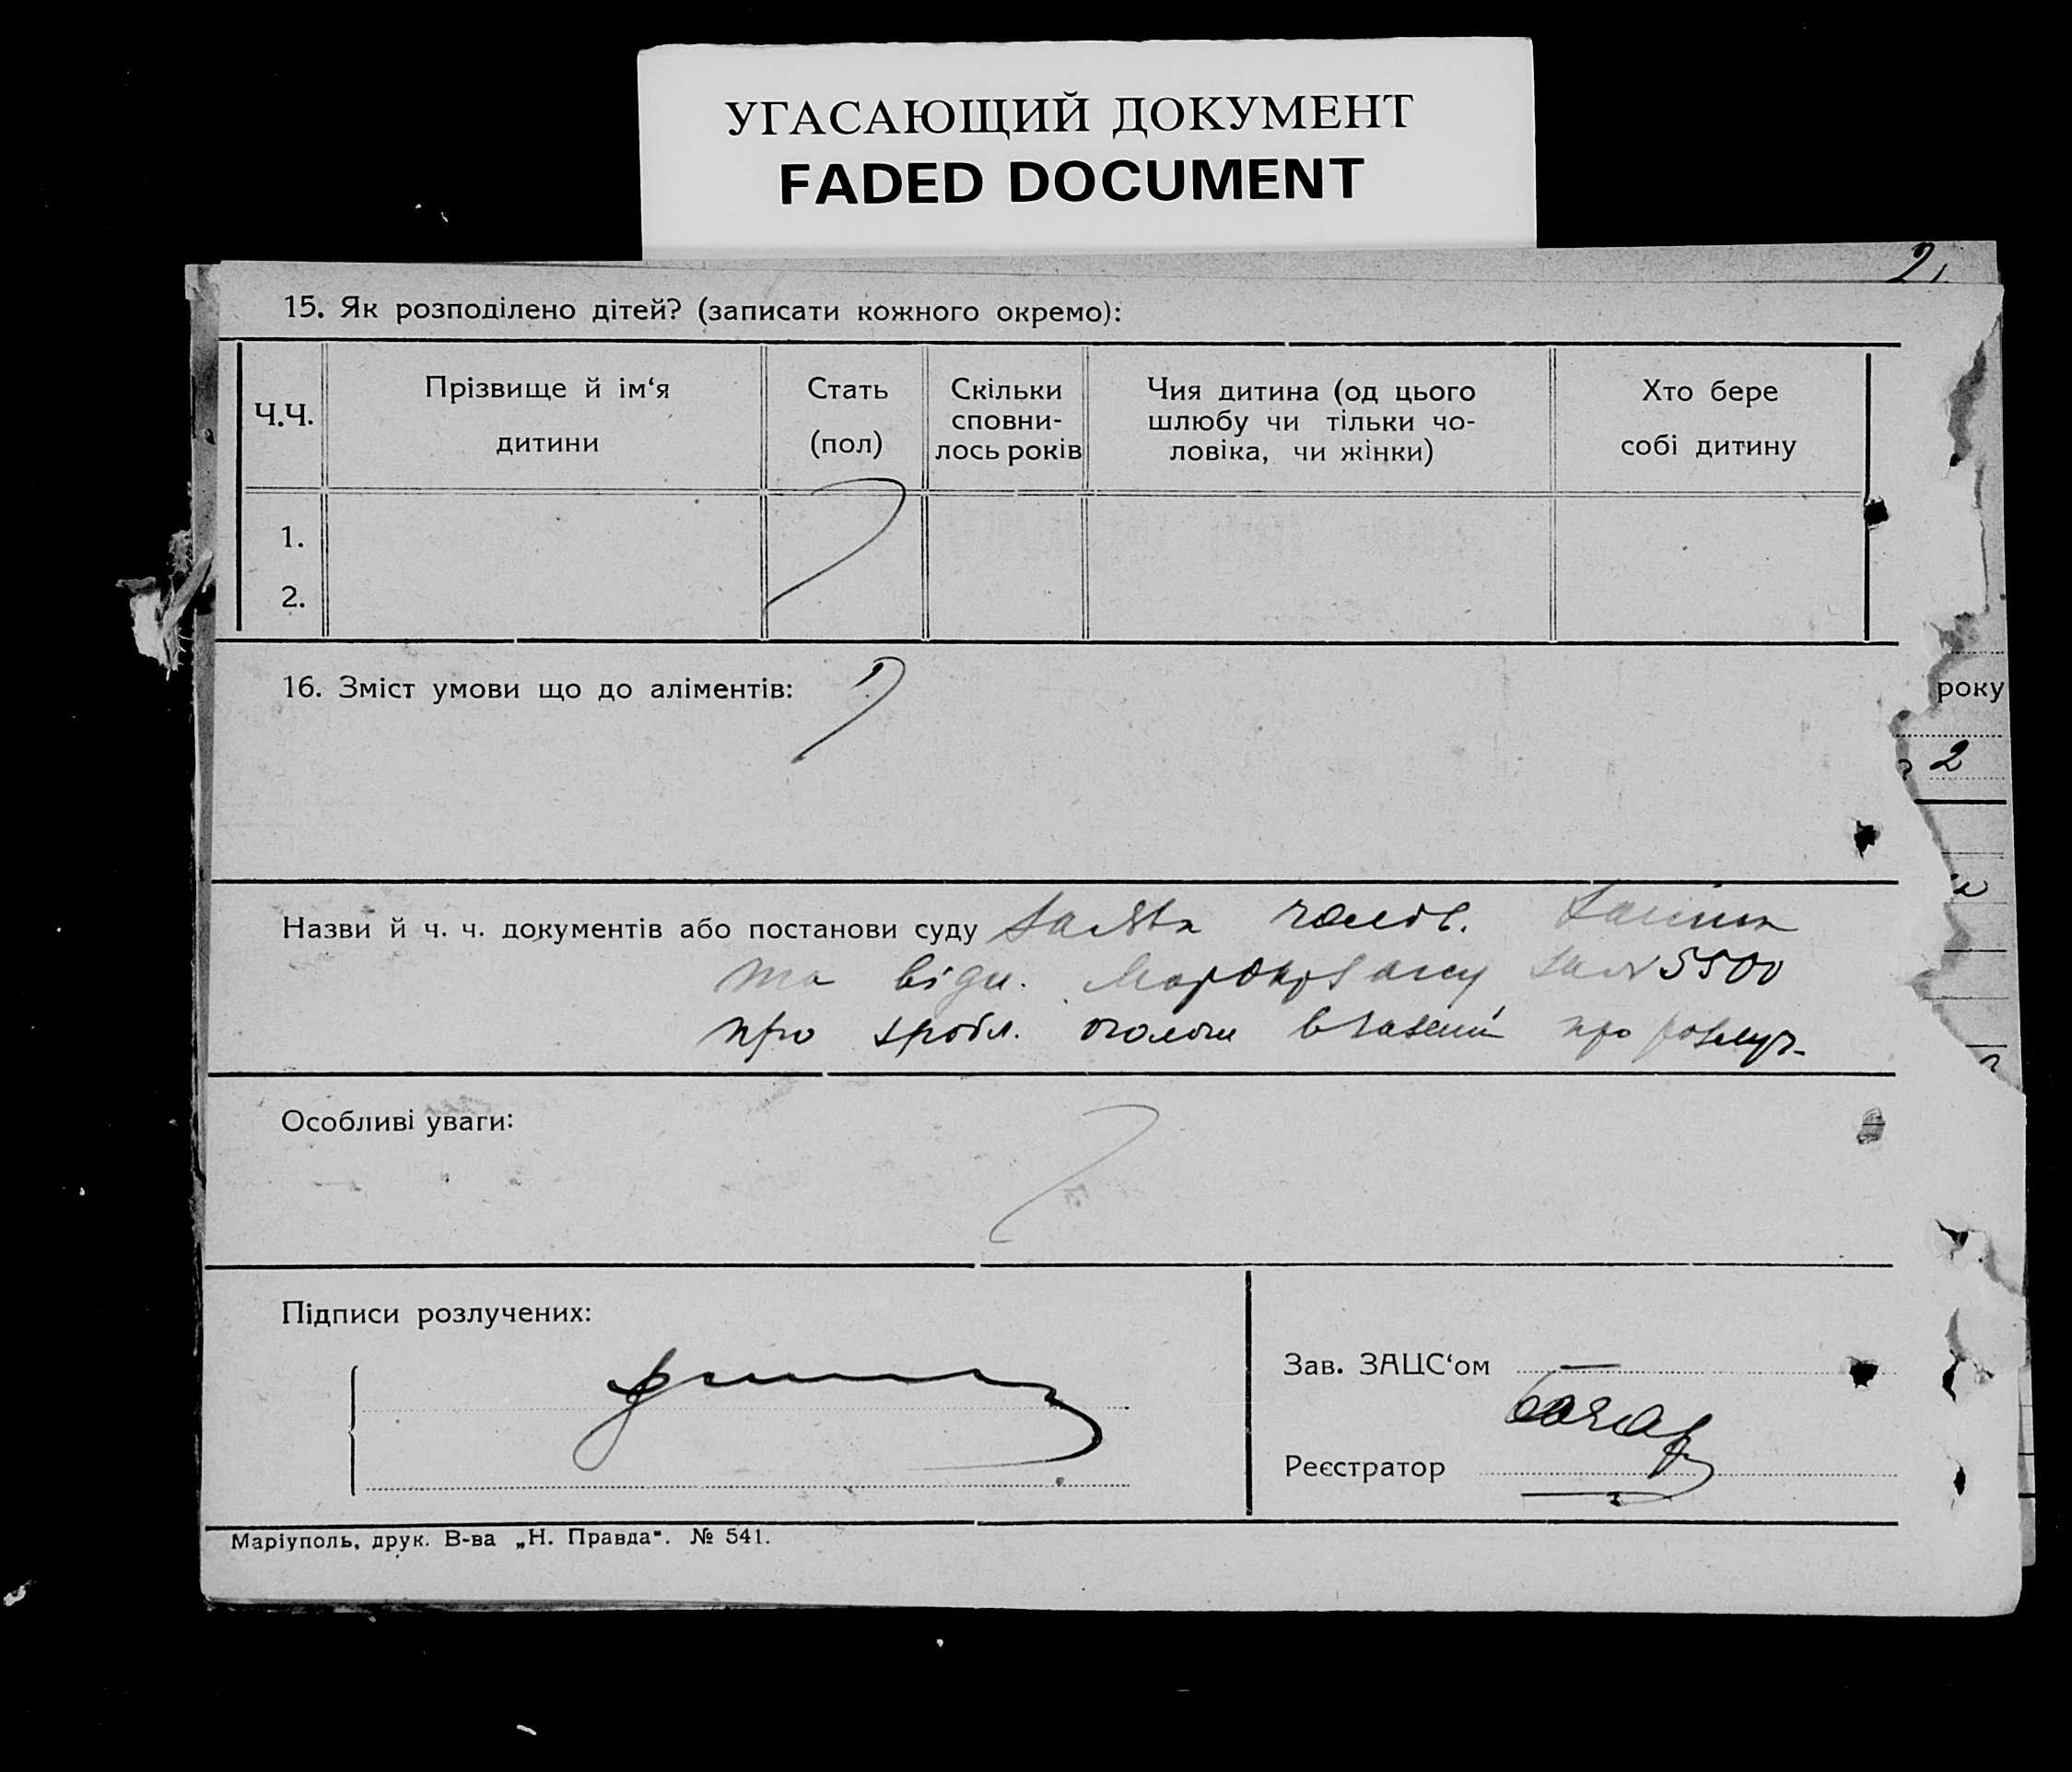 УГАСАЮЩИЙ ДОКУМЕНТ
FADED DOCUMENT
2
15. Як розподілено дітей? (записати кожного окремо):
Ч.Ч.
Прізвище й ім‘я
дитини
Стать
(пол)
Скільки
сповни-
лось років
Чия дитина (од цього
шлюбу чи тільки чо-
ловіка, чи жінки)
Хто бере
собі дитину
1.
2.
16. Зміст умови що до аліментів:
року
2
Назви й ч. ч. документів або постанови суду Заява
та відн. за № 5500
про зробл. про розлуч.
Особливі уваги:
Підписи розлучених:
Зав. ЗАЦС‘ом —
Реєстратор
Маріуполь, друк. В-ва „Н. Правда“. № 541.